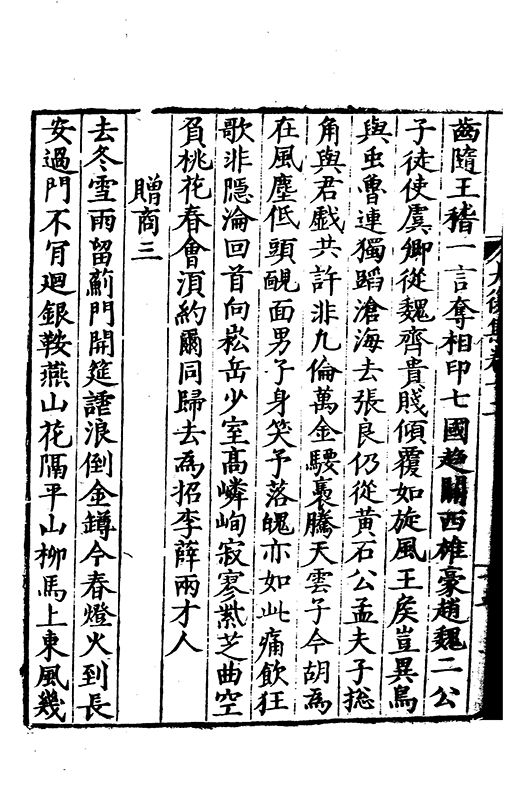 齒隨王稽一言奪相印七國趨關西雄豪趙魏二公
子徒使虞卿從魏齊貴賤傾覆如旋風王矦豈異鳥
與虫魯連獨蹈滄海去張良仍從黃石公孟夫子摠
角與君戲共許非九倫萬金騕褭騰天雲子今胡爲
在風塵低頭靦面男子身笑予落魄亦如此痛飲狂
歌非隱淪回首向崧岳少室高嶙峋寂寥紫芝曲空
負桃花春會湏約爾同歸去爲招李薛兩才人
贈商三
去冬雪雨留薊門開筵謔浪倒金罇今春燈火到長
安過門不肎廻銀鞍燕山花隔平山柳馬上東風幾